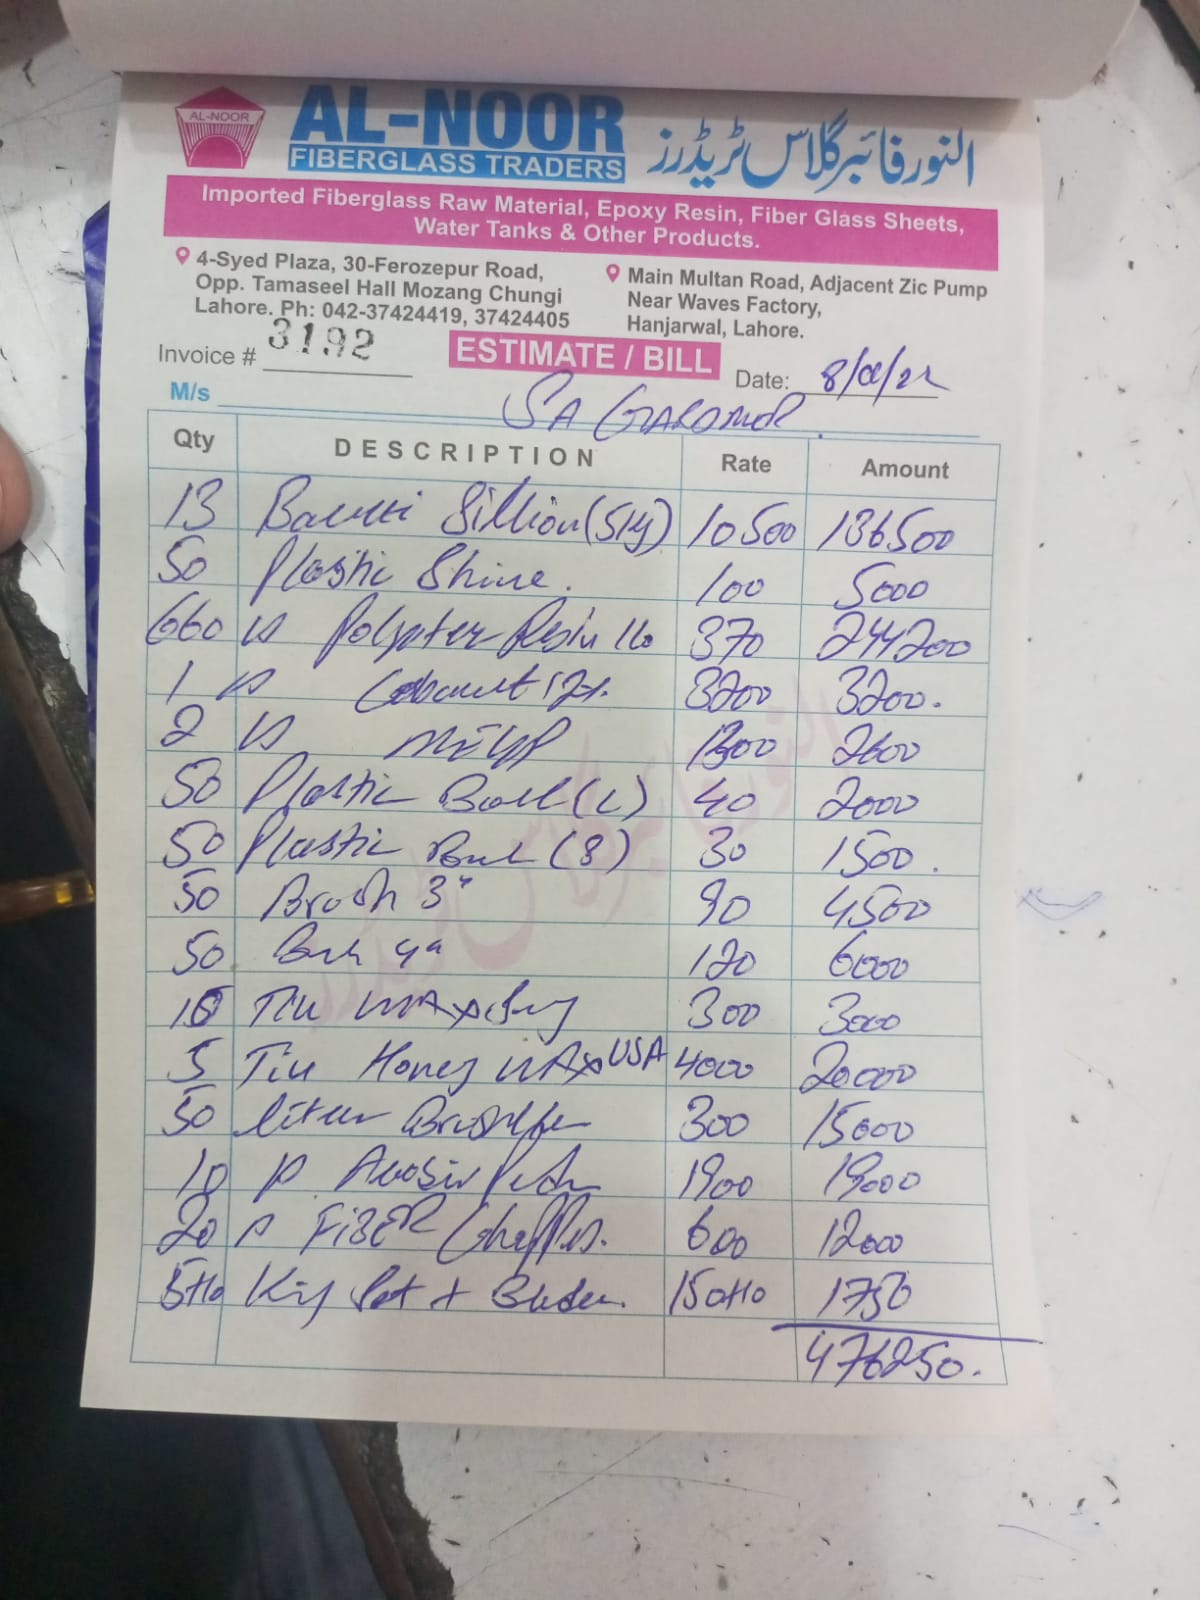 AL-NOOR
AL-NOOR
FIBERGLASS TRADERS
النور فائبر گلاس ٹریڈرز
Imported Fiberglass Raw Material, Epoxy Resin, Fiber Glass Sheets,
Water Tanks & Other Products.
4-Syed Plaza, 30-Ferozepur Road,
Opp. Tamaseel Hall Mozang Chungi
Lahore. Ph: 042-37424419, 37424405
Main Multan Road, Adjacent Zic Pump
Near Waves Factory,
Hanjarwal, Lahore.
Invoice # 3192
ESTIMATE / BILL
Date:
M/s SA
Qty DESCRIPTION Rate Amount
13 10500 136500
50 Plastic Shine. 100 5000
660 Resin 370 244200
1 3200 3200.
2 1300 2600
50 Plastic Bowl (L) 40 2000
50 Plastic Bowl (S) 30 1500.
50 Brush 3" 90 4500
50 4" 120 6000
10 Tin WAX 300 3000
5 Tin Honey WAX USA 4000 20000
50 300 15000
10 1900 19000
20 FIBER 600 12000
1750
476250.